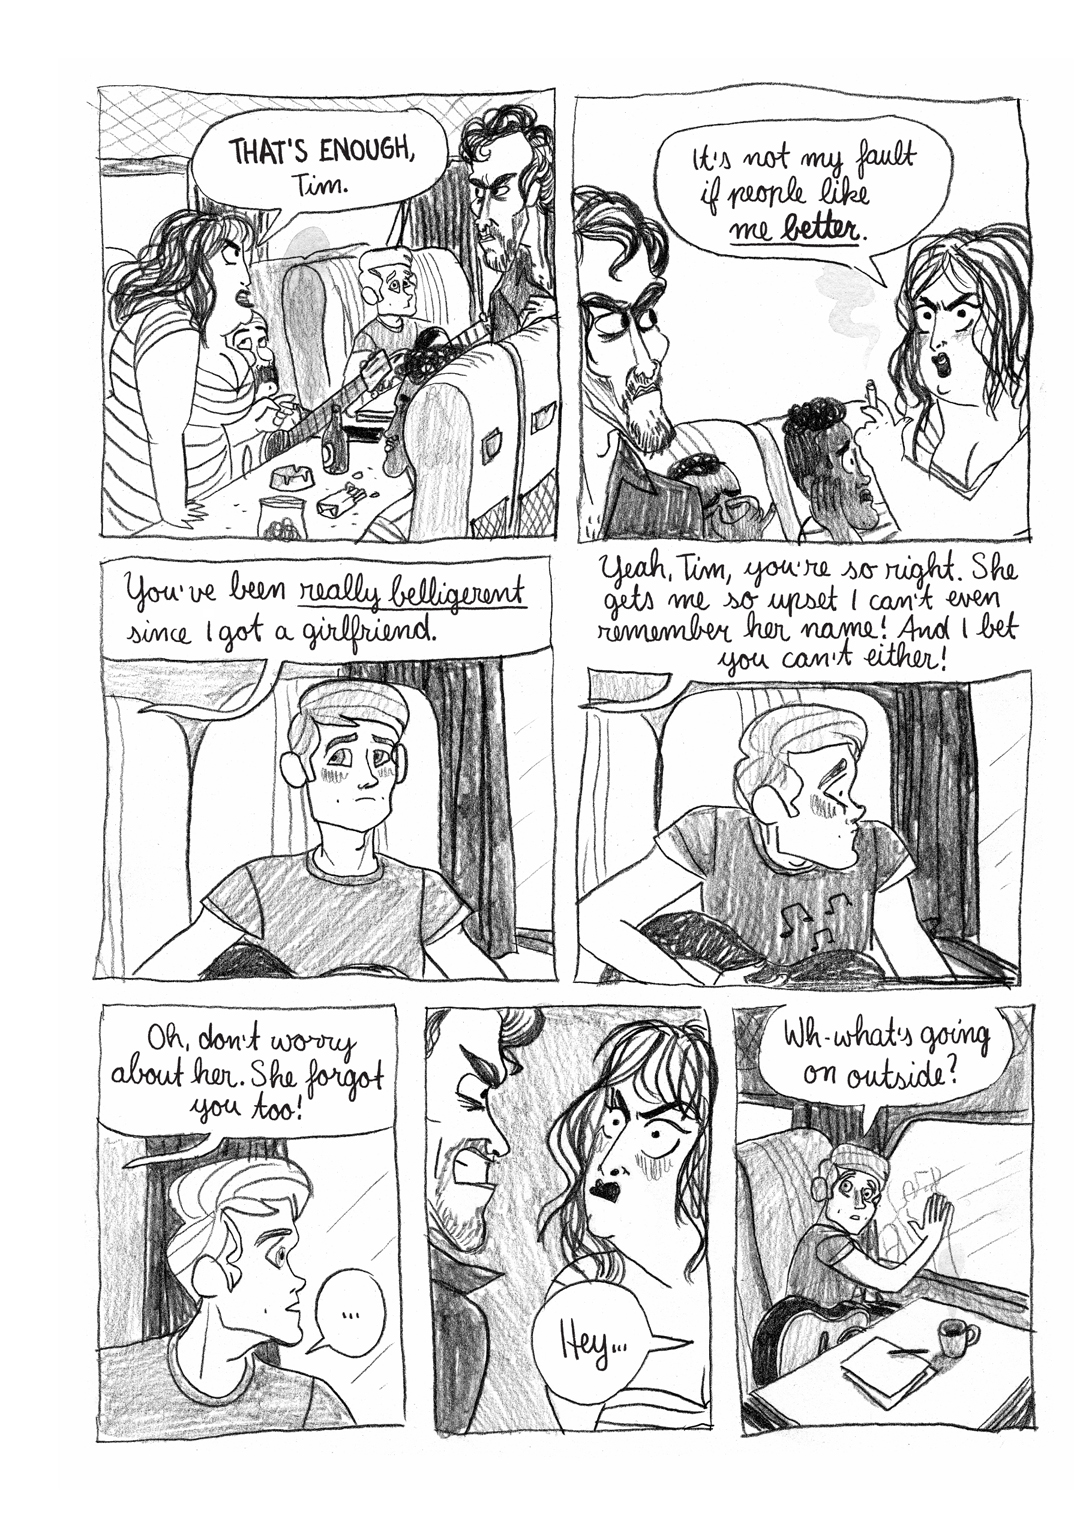 THAT'S ENOUGH,
Tim.
It's not my fault
if people like
me better.
You've been really belligerent
since I got a girlfriend.
Yeah, Tim, you're so right. She
gets me so upset I can't even
remember her name! And I bet
you can't either!
Oh, don't worry
about her. She forgot
you too!
...
Hey...
Wh-what's going
on outside?